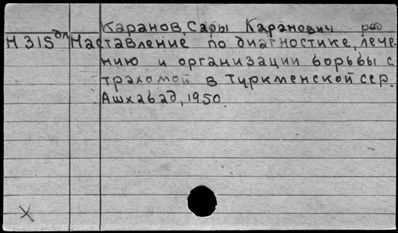 Каранов, Сары Каранович
Н 315 дл Наставление по диагностике, лече-
нию и организации борьбы с
трахомой в Туркменской сср.
Ашхабад, 1950.
X